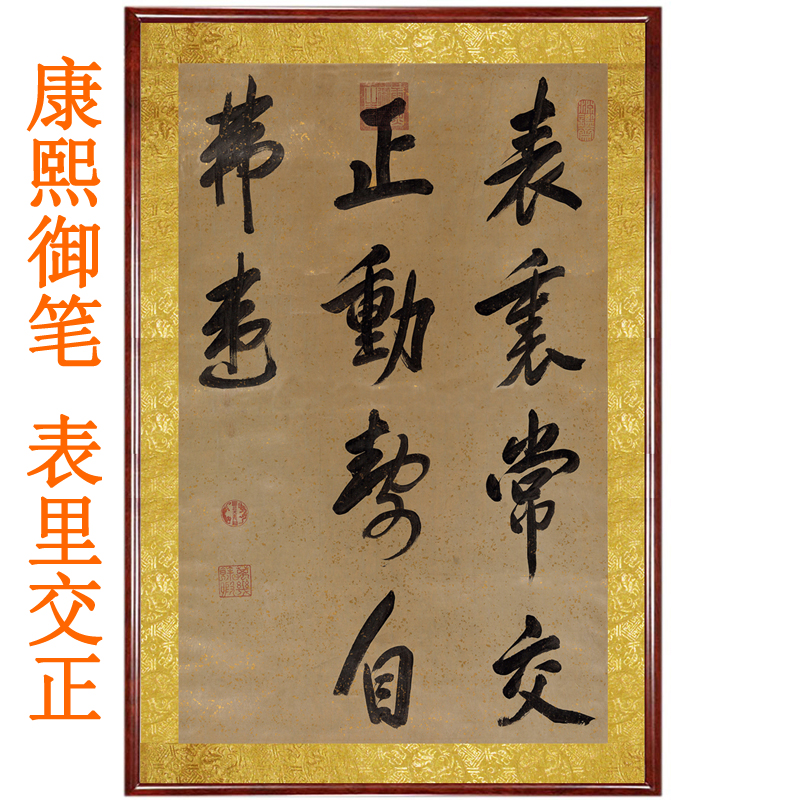 康熙御笔 表里交正
表裏常交
正動靜自
弗違